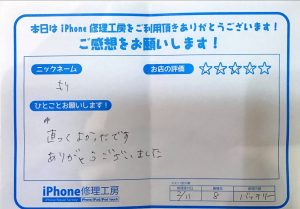 本日は iPhone 修理工房をご利用頂きありがとうございます!
ご感想をお願いします!
ニックネーム
お店の評価 ☆☆☆☆☆
ひとことお願いします!
直ってよかったです
ありがとうございました
iPhone修理工房
iPhone Repair Factory iPhone/iPad/iPod touch
2/11 8 バッテリー